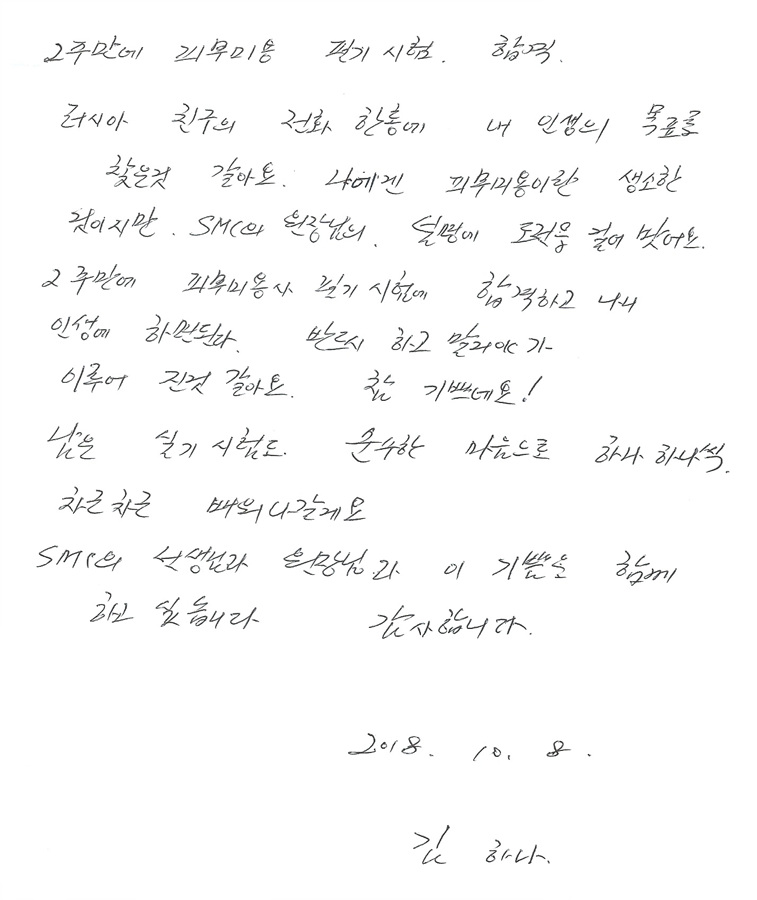 2주만에 피부미용 필기 시험. 합격.
러시아 친구의 전화 한통에 내 인생의 목표를
찾은것 같아요. 나에겐 피부미용이란 생소한
것이지만. SMC의 원장님의. 설명에 도전을 걸어 봣어요.
2주만에 피부미용사 필기 시험에 합격하고 나니
인생에 하면된다. 반드시 하고 말리야가
이루어 진것 같아요. 참 기쁘네요!
남은 실기 시험도. 순수한 마음으로 하나 하나씩.
차근차근 배워나갈게요
SMC의 선생님과 원장님과 이 기쁨을 함께
하고 싶습니다 감사합니다.
2018. 10. 8.
김 하나.